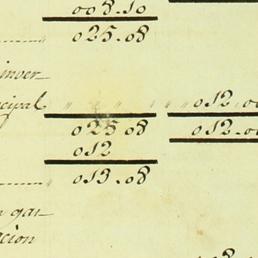 008.10
025.08
inver
cipal " " " " 012.00
025 08 012.00
012
013.08
n gas
acion